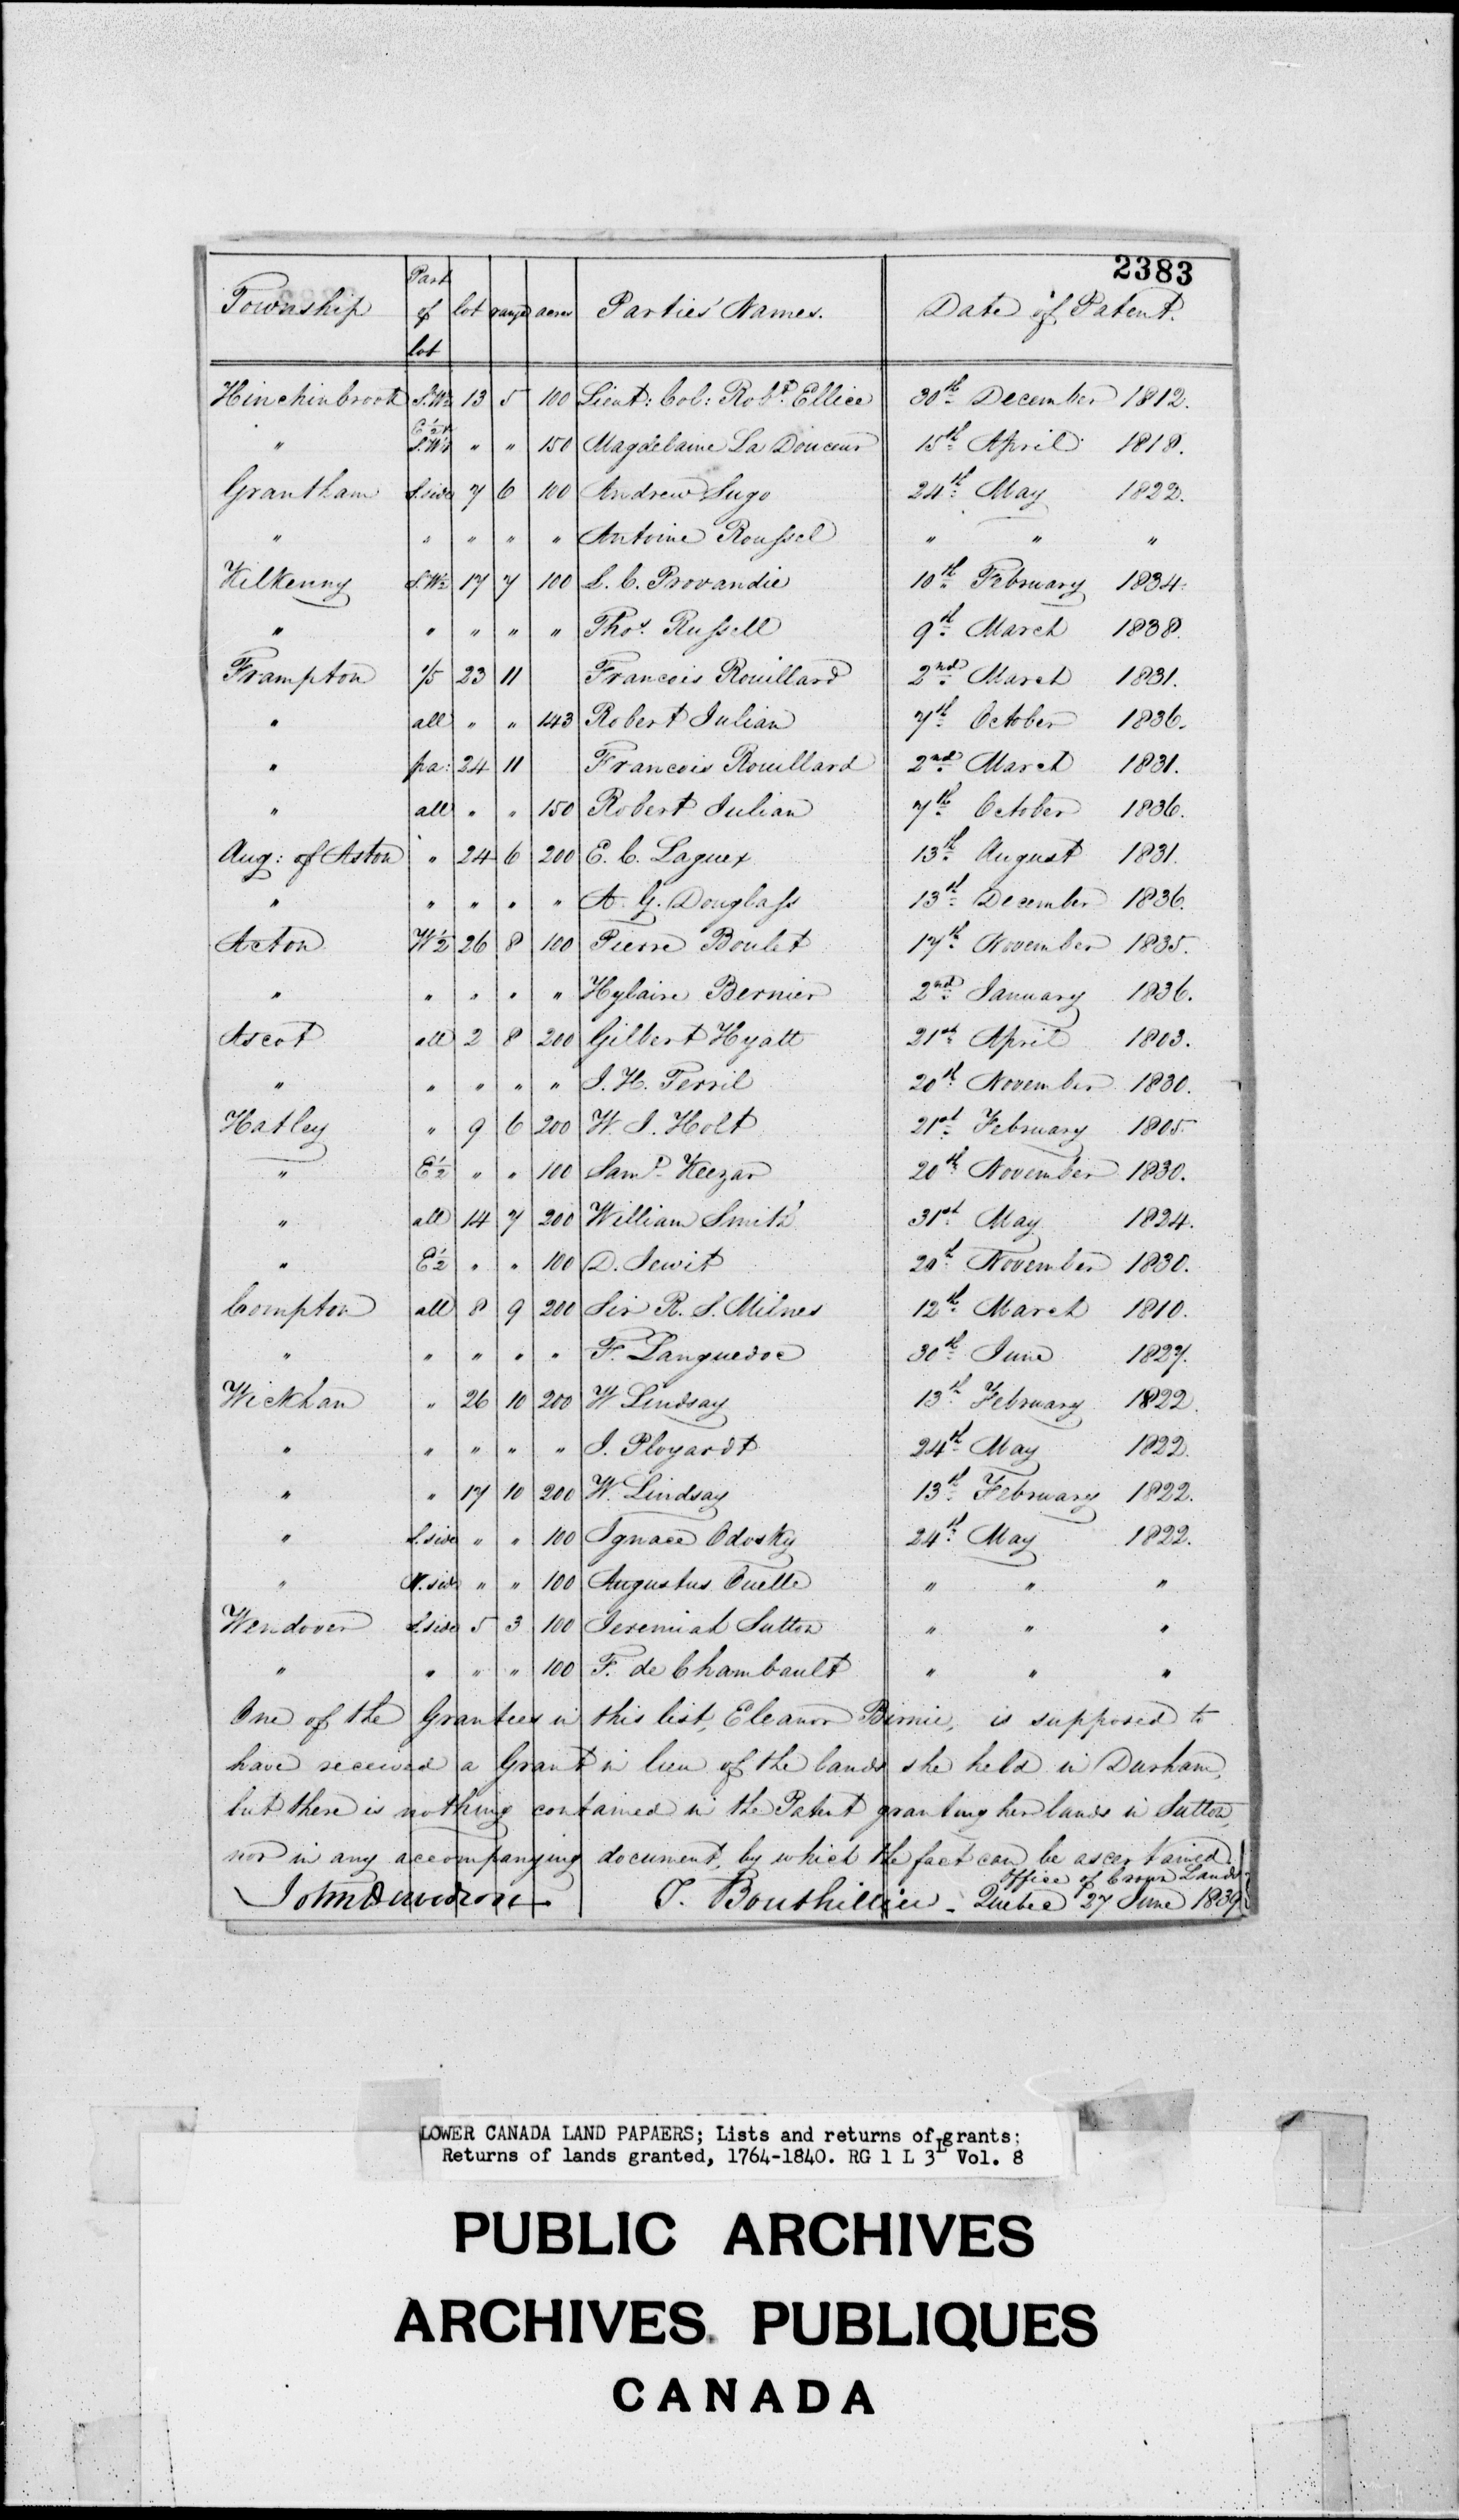 2383
Township Part of lot lot range acres Parties' Names. Date of Patent.
Hinchinbrook S.W½ 13 5 100 Lieut: Col: Robt. Ellice 30th December 1812.
" E½ & S.W¼ " " 150 Magdelaine La Douceur 15th April 1818.
Grantham S. side 7 6 100 Andrew Sugo 24th May 1822.
" " " " " Antoine Roussel " " "
Kilkenny S.W½ 17 7 100 L. C. Provandie 10th February 1834.
" " " " " Thos. Russell 9th March 1838.
Frampton 1/5 23 11 Francois Rouillard 2nd March 1831.
" all " " 143 Robert Julian 7th October 1836.
" pa: 24 11 Francois Rouillard 2nd March 1831.
" all " " 150 Robert Julian 7th October 1836.
Aug: of Aston " 24 6 200 E. C. Laguex 13th August 1831.
" " " " " A. G. Douglass 13th December 1836.
Acton W½ 26 8 100 Pierre Boulet 17th November 1835.
" " " " " Hylaire Bernier 2nd January 1836.
Ascot all 2 8 200 Gilbert Hyatt 21st April 1803.
" " " " " J. H. Terril 20th November 1830.
Hatley " 9 6 200 W. J. Holt 21st February 1805
" E½ " " 100 Saml. Keezar 20th November 1830.
" all 14 7 200 William Smith 31st May 1824.
" E½ " " 100 D. Jewit 20th November 1830.
Compton all 8 9 200 Sir R. S. Milnes 12th March 1810.
" " " " " F. Languedoc 30th June 1827.
Wickham " 26 10 200 W Lindsay 13th February 1822.
" " " " " J. Ployardt 24th May 1822.
" " 17 10 200 W. Lindsay 13th February 1822.
" S. side " " 100 Ignace Odosky 24th May 1822.
" N. side " " 100 Augustus Ouelle " " "
Wendover S. side 5 3 100 Jeremiah Sutton " " "
" " " " 100 F. de Chambault " " "
One of the Grantees in this list, Eleanor Birnie, is supposed to
have received a Grant in lieu of the lands she held in Durham,
but there is nothing contained in the Patent granting her lands in Sutton,
nor in any accompanying document, by which the fact can be ascertained.
Office of Crown Lands
John Davidson T. Bouthillier - Quebec 27 June 1839
LOWER CANADA LAND PAPAERS; Lists and returns of grants;
Returns of lands granted, 1764-1840. RG 1 L 3L Vol. 8
PUBLIC ARCHIVES
ARCHIVES PUBLIQUES
CANADA